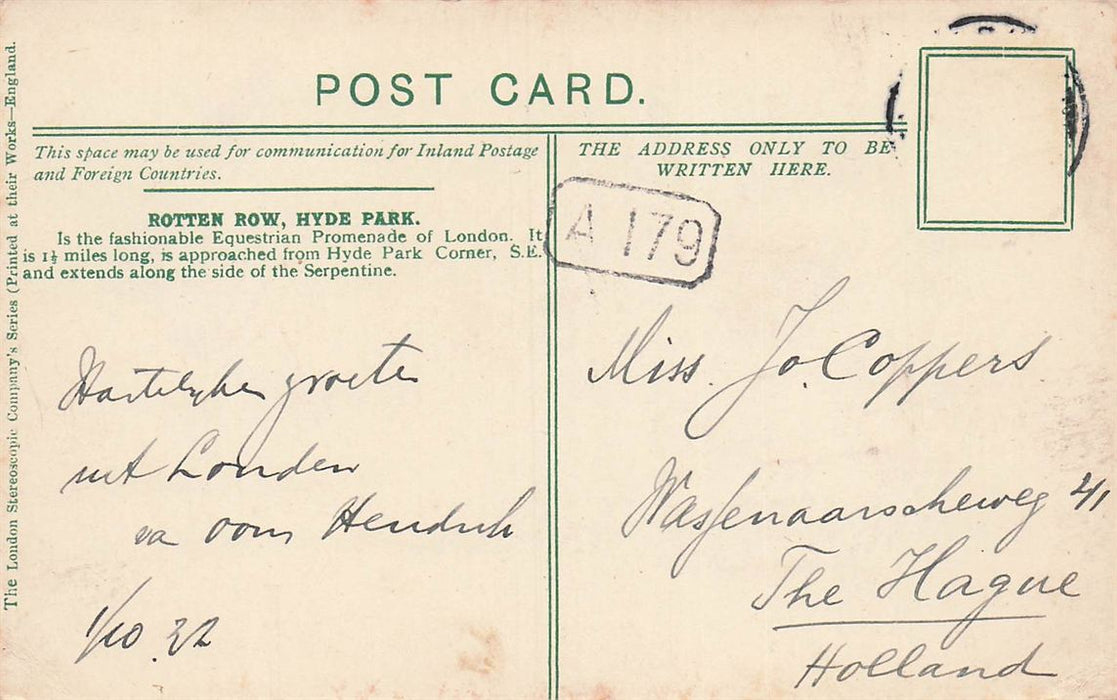 POST CARD.
This space may be used for communication for Inland Postage
and Foreign Countries.
ROTTEN ROW, HYDE PARK.
Is the fashionable Equestrian Promenade of London. It
is 1½ miles long, is approached from Hyde Park Corner, S.E.
and extends along the side of the Serpentine.
Hartelyke groeten
uit Londen
va oom Hendrik
1/10.22
The London Stereoscopic Company's Series (Printed at their Works—England.
THE ADDRESS ONLY TO BE
WRITTEN HERE.
A 179
Miss. Jo. Coppers
Wassenaarscheweg 41
The Hague
Holland